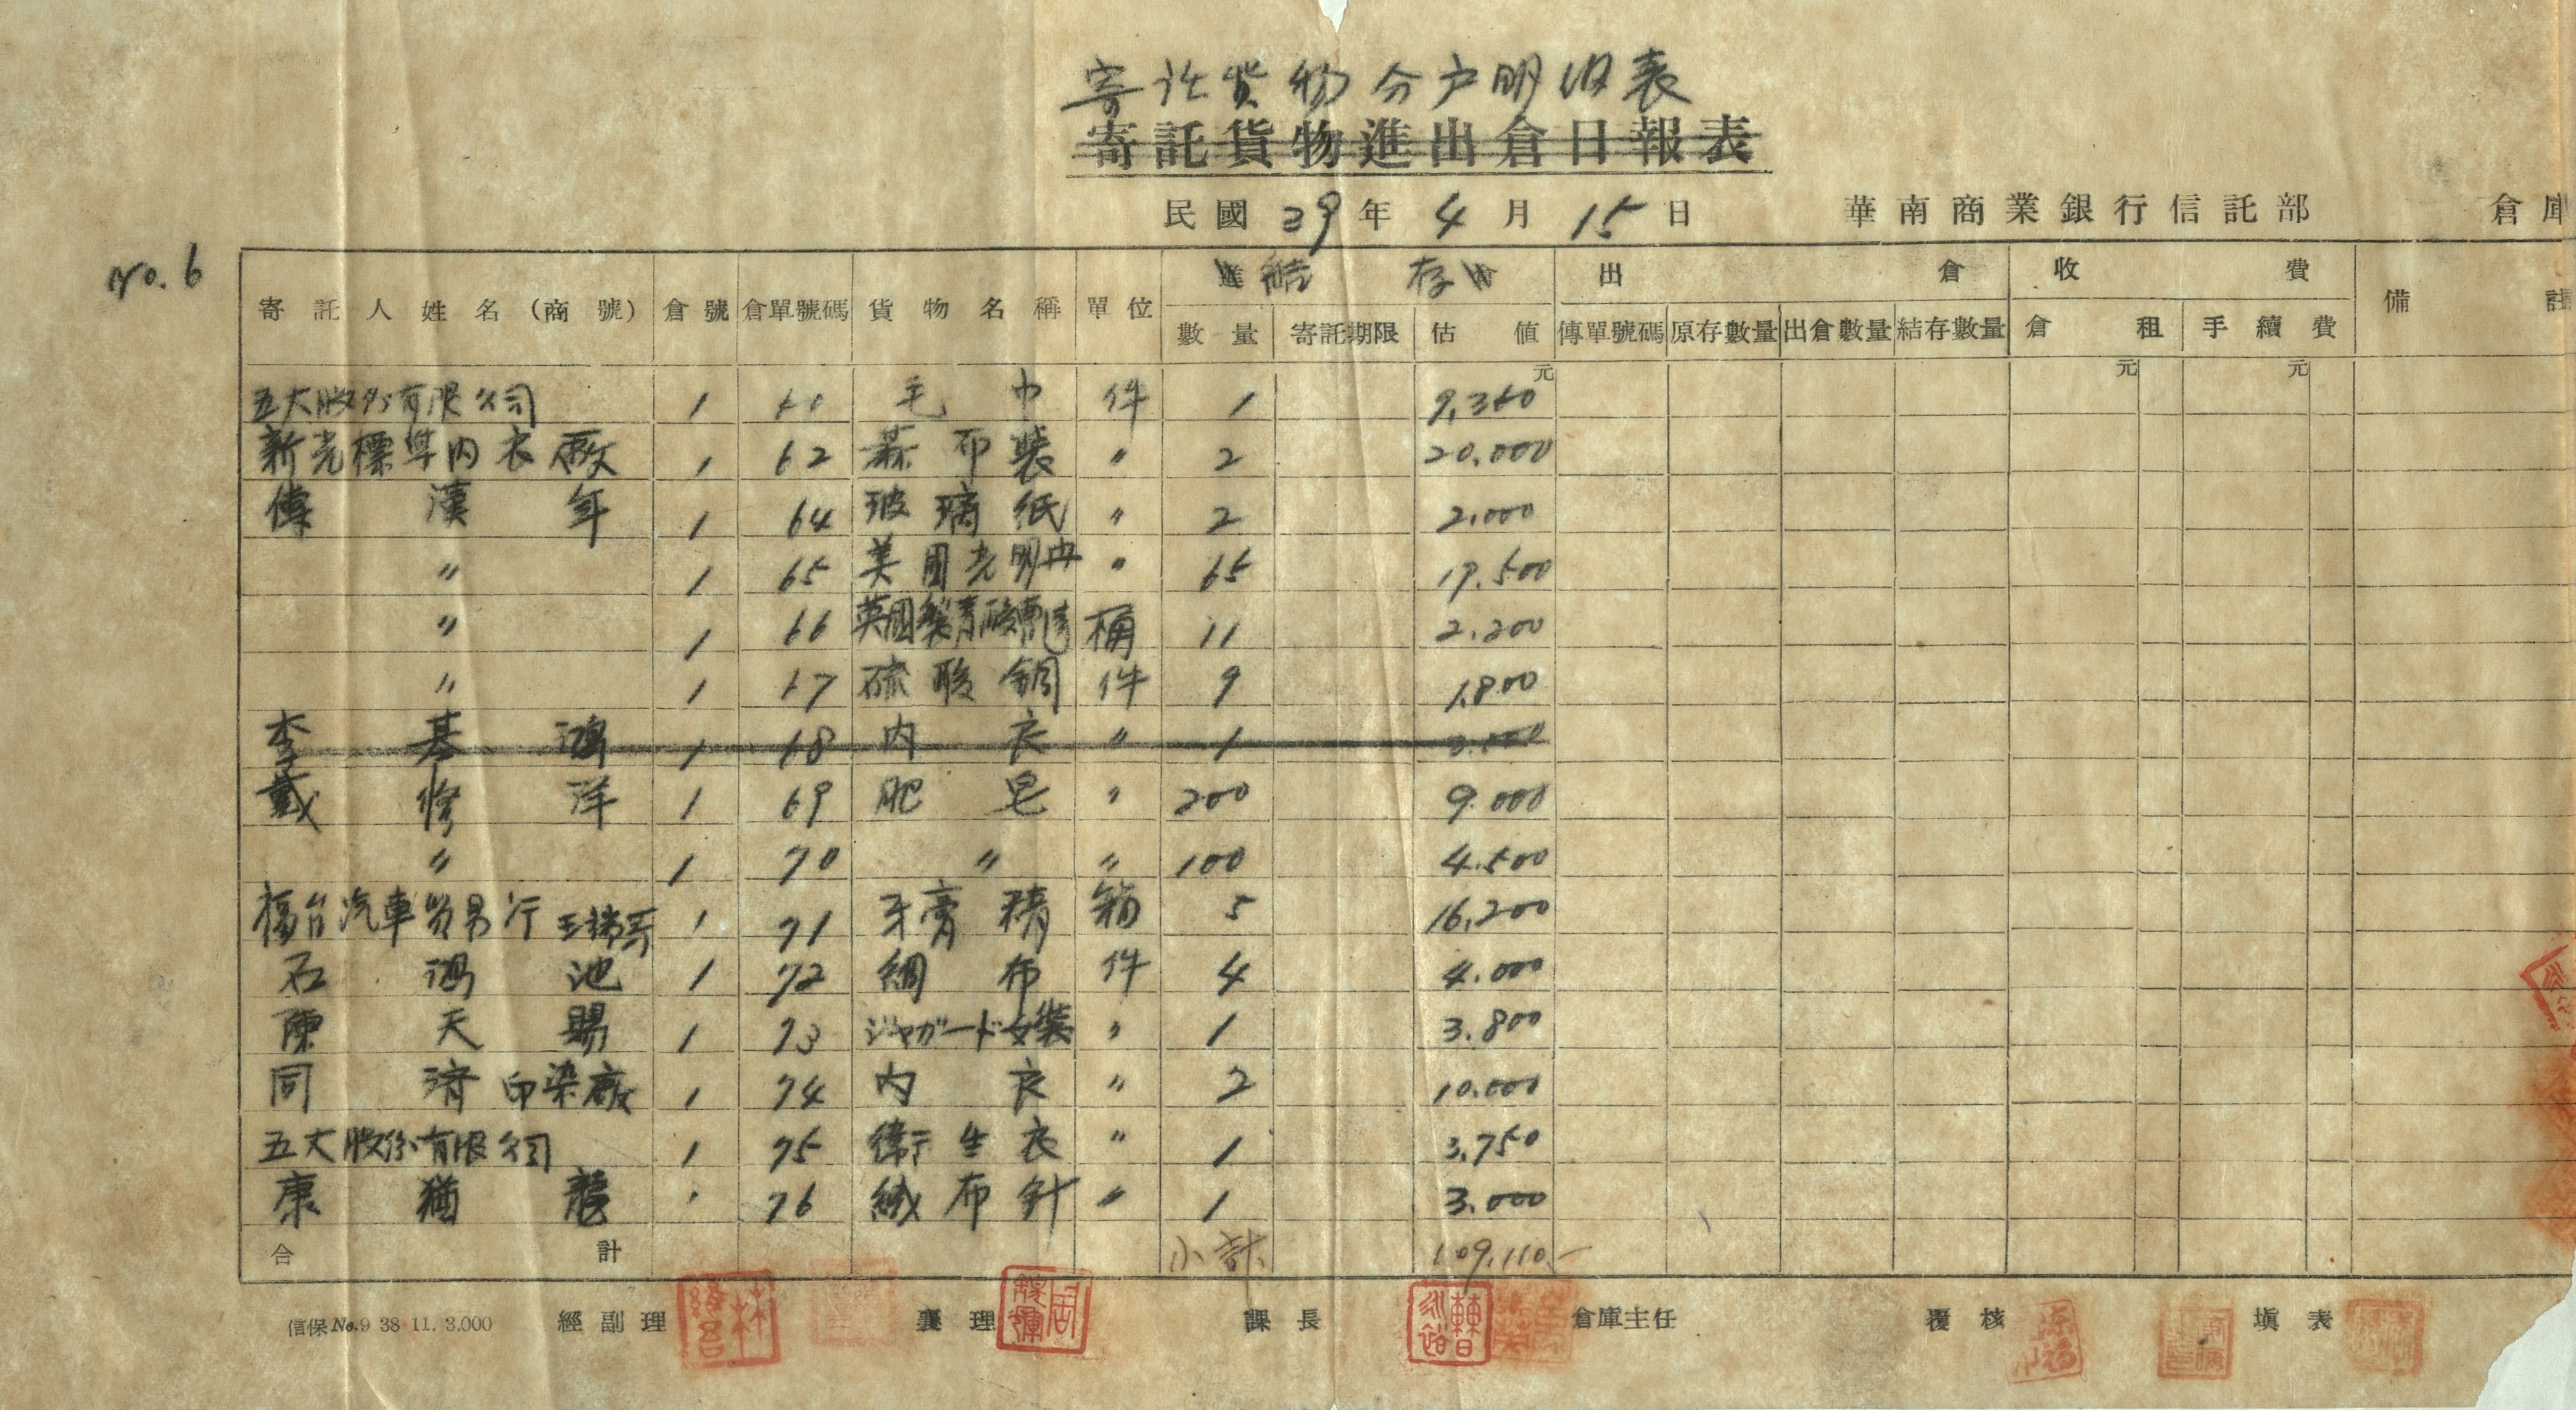 寄託貨物分户明細表
寄託貨物進出倉日報表
民國 39 年 4 月 15 日 華南商業銀行信託部 倉庫
No. 6
寄託人姓名(商號) 倉號 倉單號碼 貨物名稱 單位 結存 出倉 收費 備註
數量 寄託期限 估值 傳單號碼 原存數量 出倉數量 結存數量 倉租 手續費
元 元 元
五大股份有限公司 1 61 毛巾 件 1 9,360
新光標準内衣廠 1 62 布裝 〃 2 20,000
傅漢年 1 64 玻璃紙 〃 2 2,000
〃 1 65 美國光明丹 〃 65 19,500
〃 1 66 英國製青酸 桶 11 2,200
〃 1 67 硫酸銅 件 9 1,800
李基鴻 1 68 内衣 〃 1
戴修洋 1 69 肥皂 〃 200 9,000
〃 1 70 〃 〃 100 4,500
福台汽車貿易行 1 71 牙膏精 箱 5 16,200
石鴻池 1 72 綢布 件 4 4,000
陳天賜 1 73 ジャガード女裝 〃 1 3,800
同濟印染廠 1 74 内衣 〃 2 10,000
五大股份有限公司 1 75 衛生衣 〃 1 3,750
康猶龍 1 76 織布針 〃 1 3,000
合計 小計 109,110.-
信保No.9 38 11. 3.000 經副理 襄理 課長 倉庫主任 覆核 填表